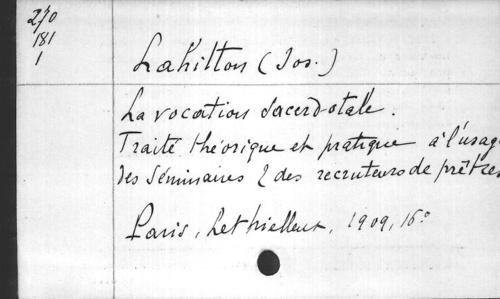 270
181
1
Lahitton (Jos.)
La vocation sacerdotale.
Traité théorique et pratique à l'usag
des séminaires & des recruteurs de prêtres
Paris, Lethielleux, 1909, 16°